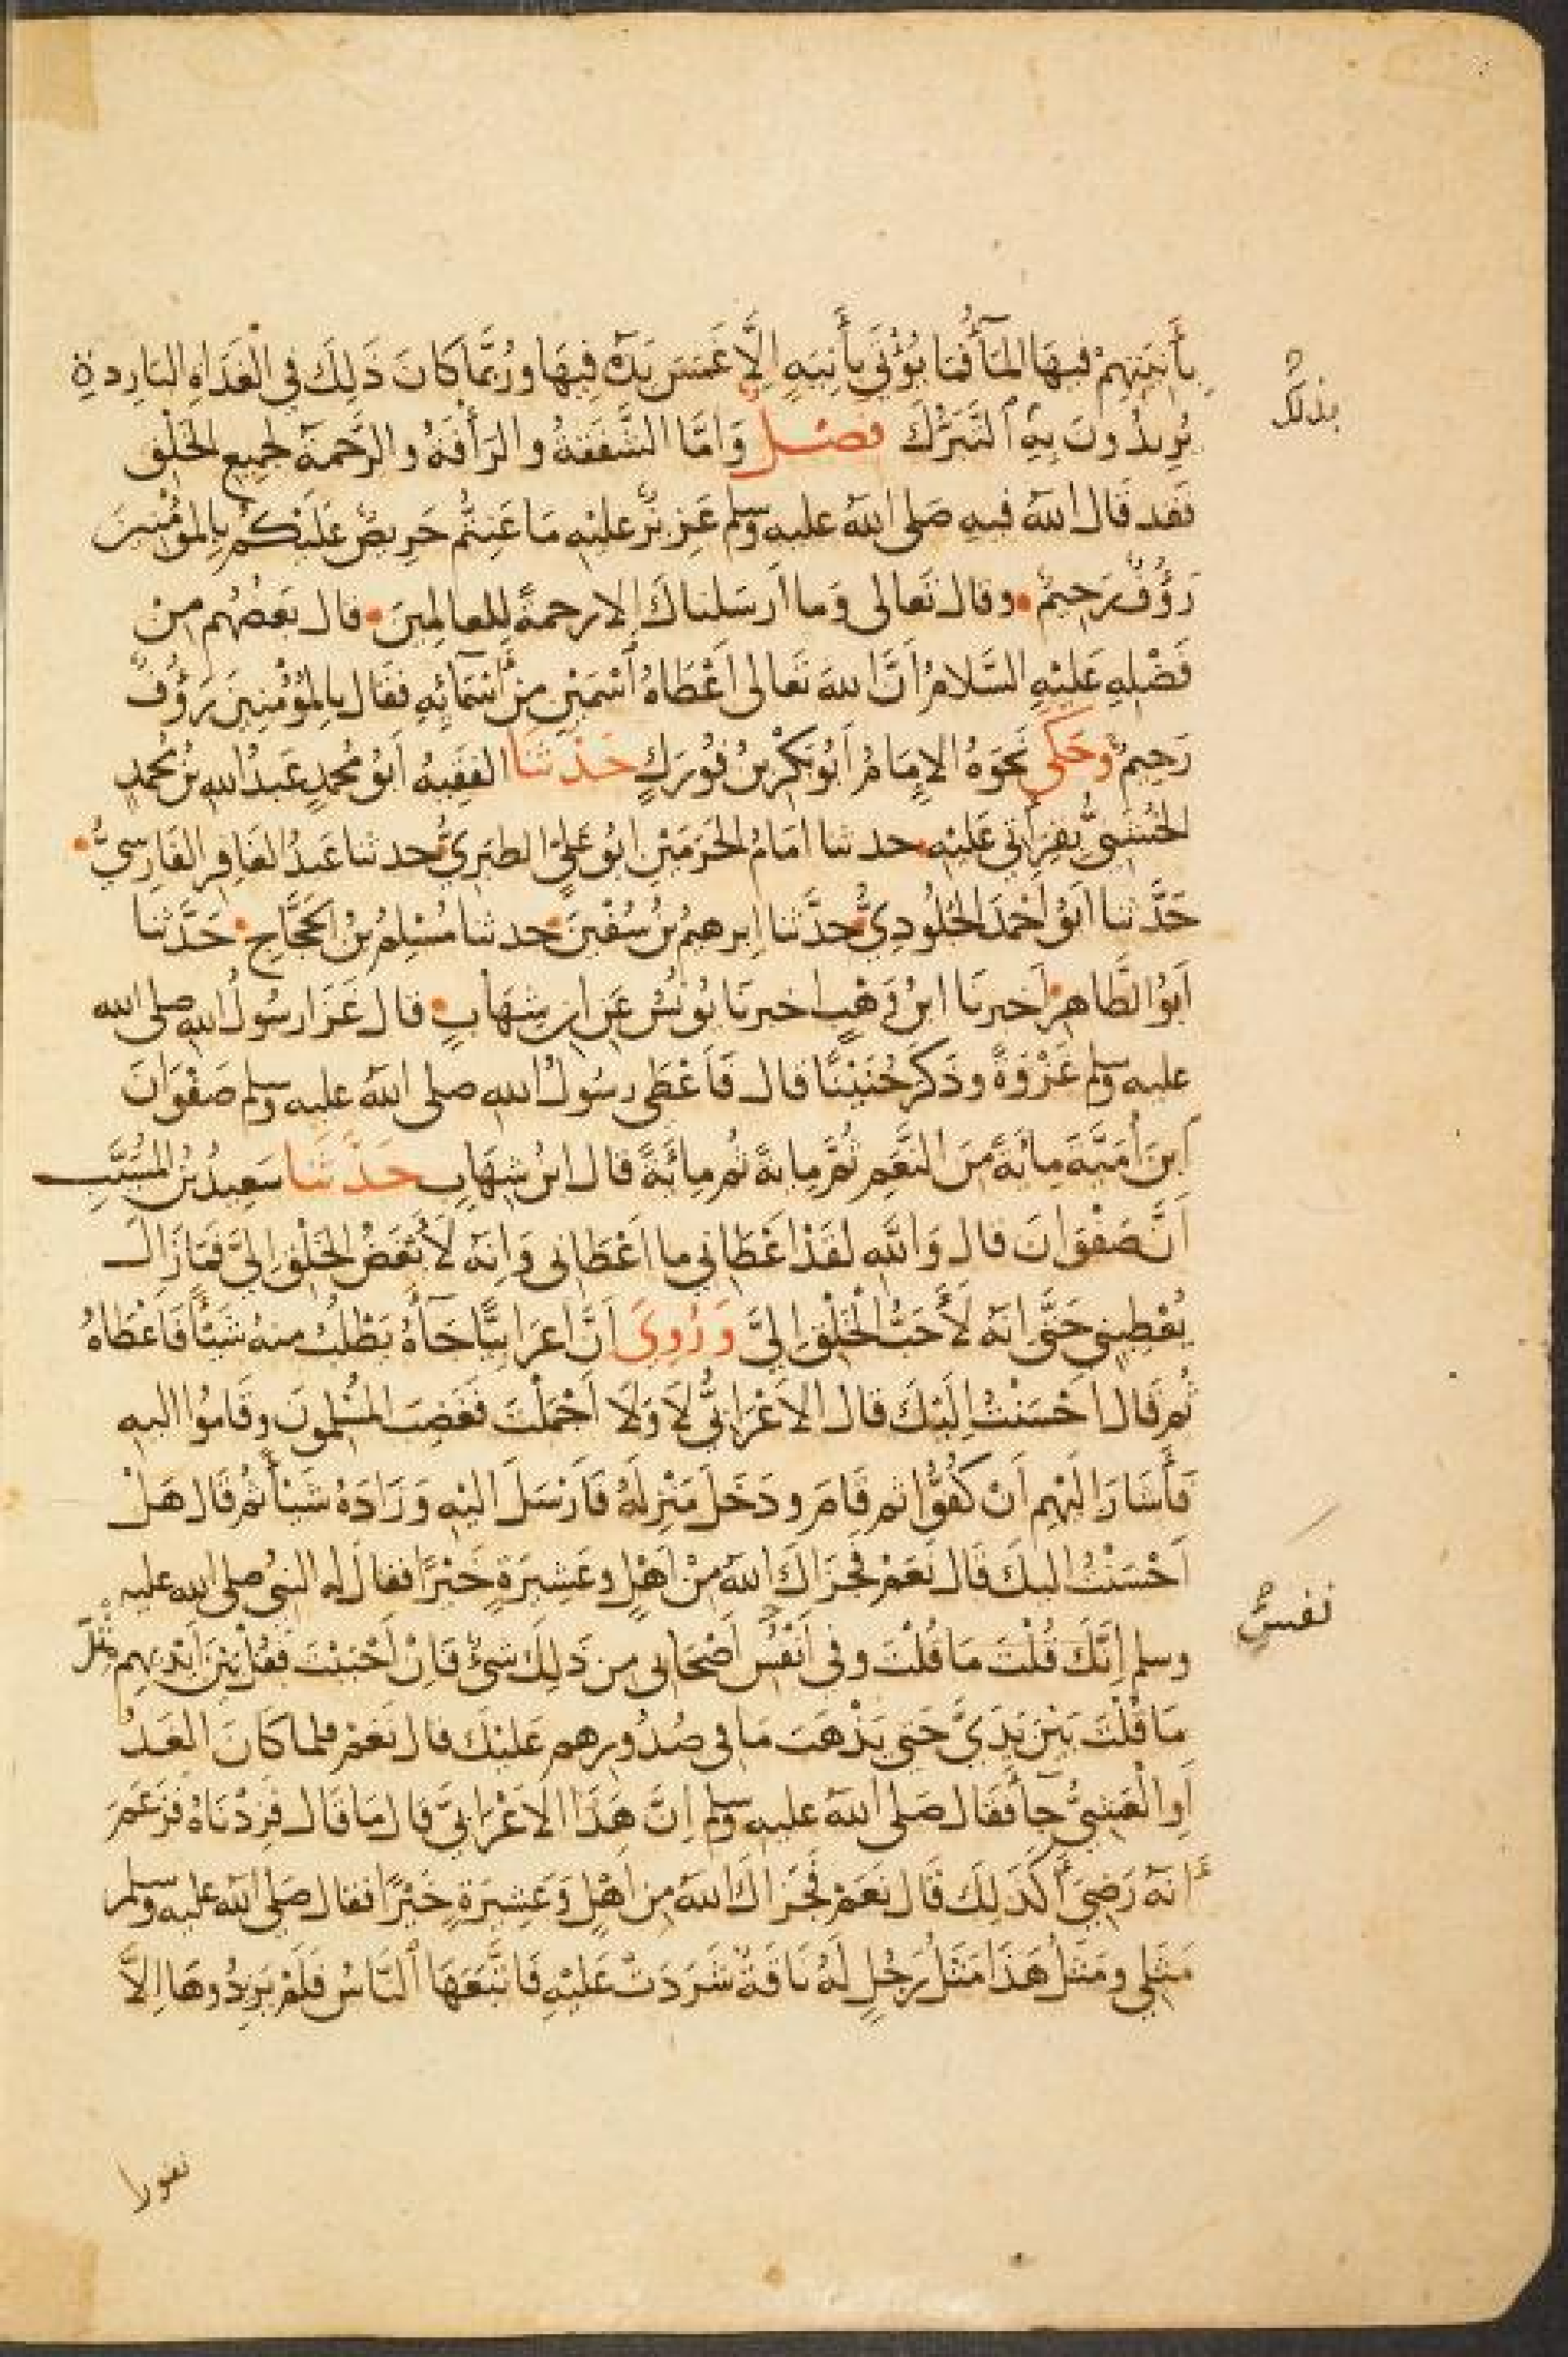 بِآنِيَتِهِمْ فِيهَا المَآءُ فَمَا يُؤْتَى بِآنِيَةٍ اِلَّا غَمَسَ يَدَهُ فِيهَا وَرُبَّمَا كَانَ ذَلِكَ فِى الْغَدَاةِ البَارِدَةِ
بذلك
يُرِيدُونَ بِهِ التَّبَرُّكَ فصل وَامَّا الشَّفَقَةُ والرَأْفَةُ والرَّحْمَةُ لجميع الخَلْقِ
فَقَد قَالَ اللهُ فيهِ صَلى اللهُ عليه وسلم عَزِيزٌ عليْهِ مَا عَنِتُّم حَرِيصٌ عَلَيْكُم بِالمؤْمِنِينَ
رَؤُفٌ رَحِيمٌ وقال تَعالى وَما اَرسَلناكَ إلا رحمةً للعالمِينَ قال بَعضُهم مِنْ
فَضْلِهِ عَلَيْهِ السَّلامُ اَنَّ اللهَ تَعالى اَعْطَاهُ اسْمَيْنِ مِنْ اَسْمَائِهِ فقال بِالمُؤْمِنِينَ رَؤُفٌ
رَحِيمٌ وَحَكَى نَحْوَهُ الاِمَامُ اَبُو بَكْرِ بنُ فُورَكٍ حَدثنَا الفَقِيهُ اَبُو مُحمدٍ عَبدُ اللهِ بنُ مُحمدٍ
الخُشَنِيُّ بقِرَاءتى عَليْهِ حدثنا اِمَامُ الحَرَمَيْنِ ابُو عَلِيٍّ الطبَرِيُّ حدثنا عَبدُ الغَافِرِ الفَارِسِيُّ
حَدَّثنا اَبُو اَحْمَدَ الجُلُودِيُّ حدَّثنا اِبرهيمُ بنُ سُفْيٰنَ حدثنا مُسْلِمُ بْنُ الحَجَّاجِ حَدَّثنا
اَبُو الطَّاهِرِ اَخبرنَا ابنُ وَهْبٍ اخبرنَا يُونُسُ عَنِ ابنِ شِهَابٍ قال غَزَا رسُولُ اللهِ صلى الله
عليه وسلم غَزْوَةً وذَكَرَ حُنَيْنًا قال فَاَعْطَى رسُولُ اللهِ صلى اللهُ عليه وسلم صَفْوَانَ
ابنَ اُمَيَّةَ مِائةً مِنَ النَّعَمِ ثُمَّ مائةً ثم مِائَةً قَالَ ابنُ شِهَابٍ حَدَّثنَا سَعِيدُ بْنُ المُسَيَّبِ
اَنَّ صَفْوَانَ قال وَاللهِ لقَدْ اَعْطَانِي ما اَعْطَانِى وَاِنَّهُ لَاَبْغَضُ الخَلْقِ اِلَيَّ فمَا زَالَ
يُعْطِينِى حَتَّى اِنَّهُ لَأَحَبُّ الْخَلْقِ اِلَيَّ وَرُوِىَ اَنَّ اعرَابِيًّا جَآءَهُ يَطْلُبُ منهُ شَيْئًا فَاَعْطَاهُ
ثُمَّ قَالَ اَحْسَنْتُ اِلَيْكَ قَالَ الاَعْرَابِيُّ لَا وَلَا اَجْمَلْتَ فَغَضِبَ المُسْلِمُونَ وقَامُوا اليهِ
فَأَشَارَ اِلَيْهِم اَنْ كُفُّوا ثم قَامَ ودَخَلَ مَنْزِلَهُ فَاَرْسَلَ اليْهِ وَزَادَهُ شَيْئاً ثُمَّ قَالَ هَلْ
اَحْسَنْتُ اليكَ قَالَ نَعَمْ فَجَزَاكَ اللهُ مِنْ اَهْلٍ وعَشِيرَةٍ خَيْرًا فقالَ له النبيُ صلى الله عليه
نفس
وسلم اِنَّكَ قُلْتَ مَا قُلْتَ وفى اَنْفُسِ اَصْحَابِى مِن ذَلِكَ شَىْءٌ فَاِنْ اَحْبَبْتَ فَقُلْ بَيْنَ اَيْدِيهِم مِثْلَ
مَا قُلْتَ بَيْنَ يَدَيَّ حَتَى يَذْهَبَ مَا فى صُدُورِهم عَلَيْكَ قال نَعَمْ فلما كَانَ الغَدُ
اَوِ الْعَشِيُّ جآءَ فقَال صَلى اللهُ عليه وسلم اِنَّ هَذَا الاَعْرَابِيَّ قال مَا قَالَ فزِدْنَاهُ فزَعَمَ
اَنَّهُ رَضِيَ أَكَذَلِكَ قَالَ نَعَمْ فَجَزَاكَ اللهُ مِن اَهْلٍ وَعَشِيرَةٍ خَيْرًا فقال صَلى اللهُ عليه وسلم
مَثَلِى ومَثَلُ هَذَا مَثَلُ رَجُلٍ لَهُ نَاقَةٌ شَرَدَتْ عَلَيْهِ فَاتَّبَعَهَا النَّاسُ فَلَمْ يَزِيدُوهَا اِلاَّ
نفورا